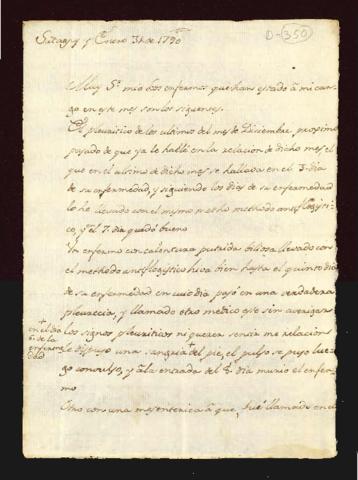 Sitagpy y Enero 31 de 1790
D-350
Muy Sr mio dos enfermos que han estado á mi car-
go en este mes son los siguenses.
El pleuritico de los ultimos del mes de Diciembre, proximo
pasado de que ya le hablé en la relacion de dicho mes el
que en el ultimo de dicho mes se hallava en el 3. dia
de su enfermedad, y siguiendo los dias de su enfermedad
lo he llevado con el mismo metho methodo antiflogysti-
co, y el 7. dia quedó bueno
Un enfermo con calentura putrida biliosa llevado con
el methodo antiflogystico hiva bien hasta el quinto dia
de su enfermedad en cuio dia pasó en una verdadera
pleuresia, y llamado otro medico este sin averiguar
los signos pleuriticos ni querer sentir me relacion
+ en el dia
6. de la
enferme
dad
le dispuso una sangria + del pie, el pulso se puso lue
go convulso, y á la entrada del 8. dia murio el enfer-
mo
Otro con una mesenterica á que, fué llamado en el